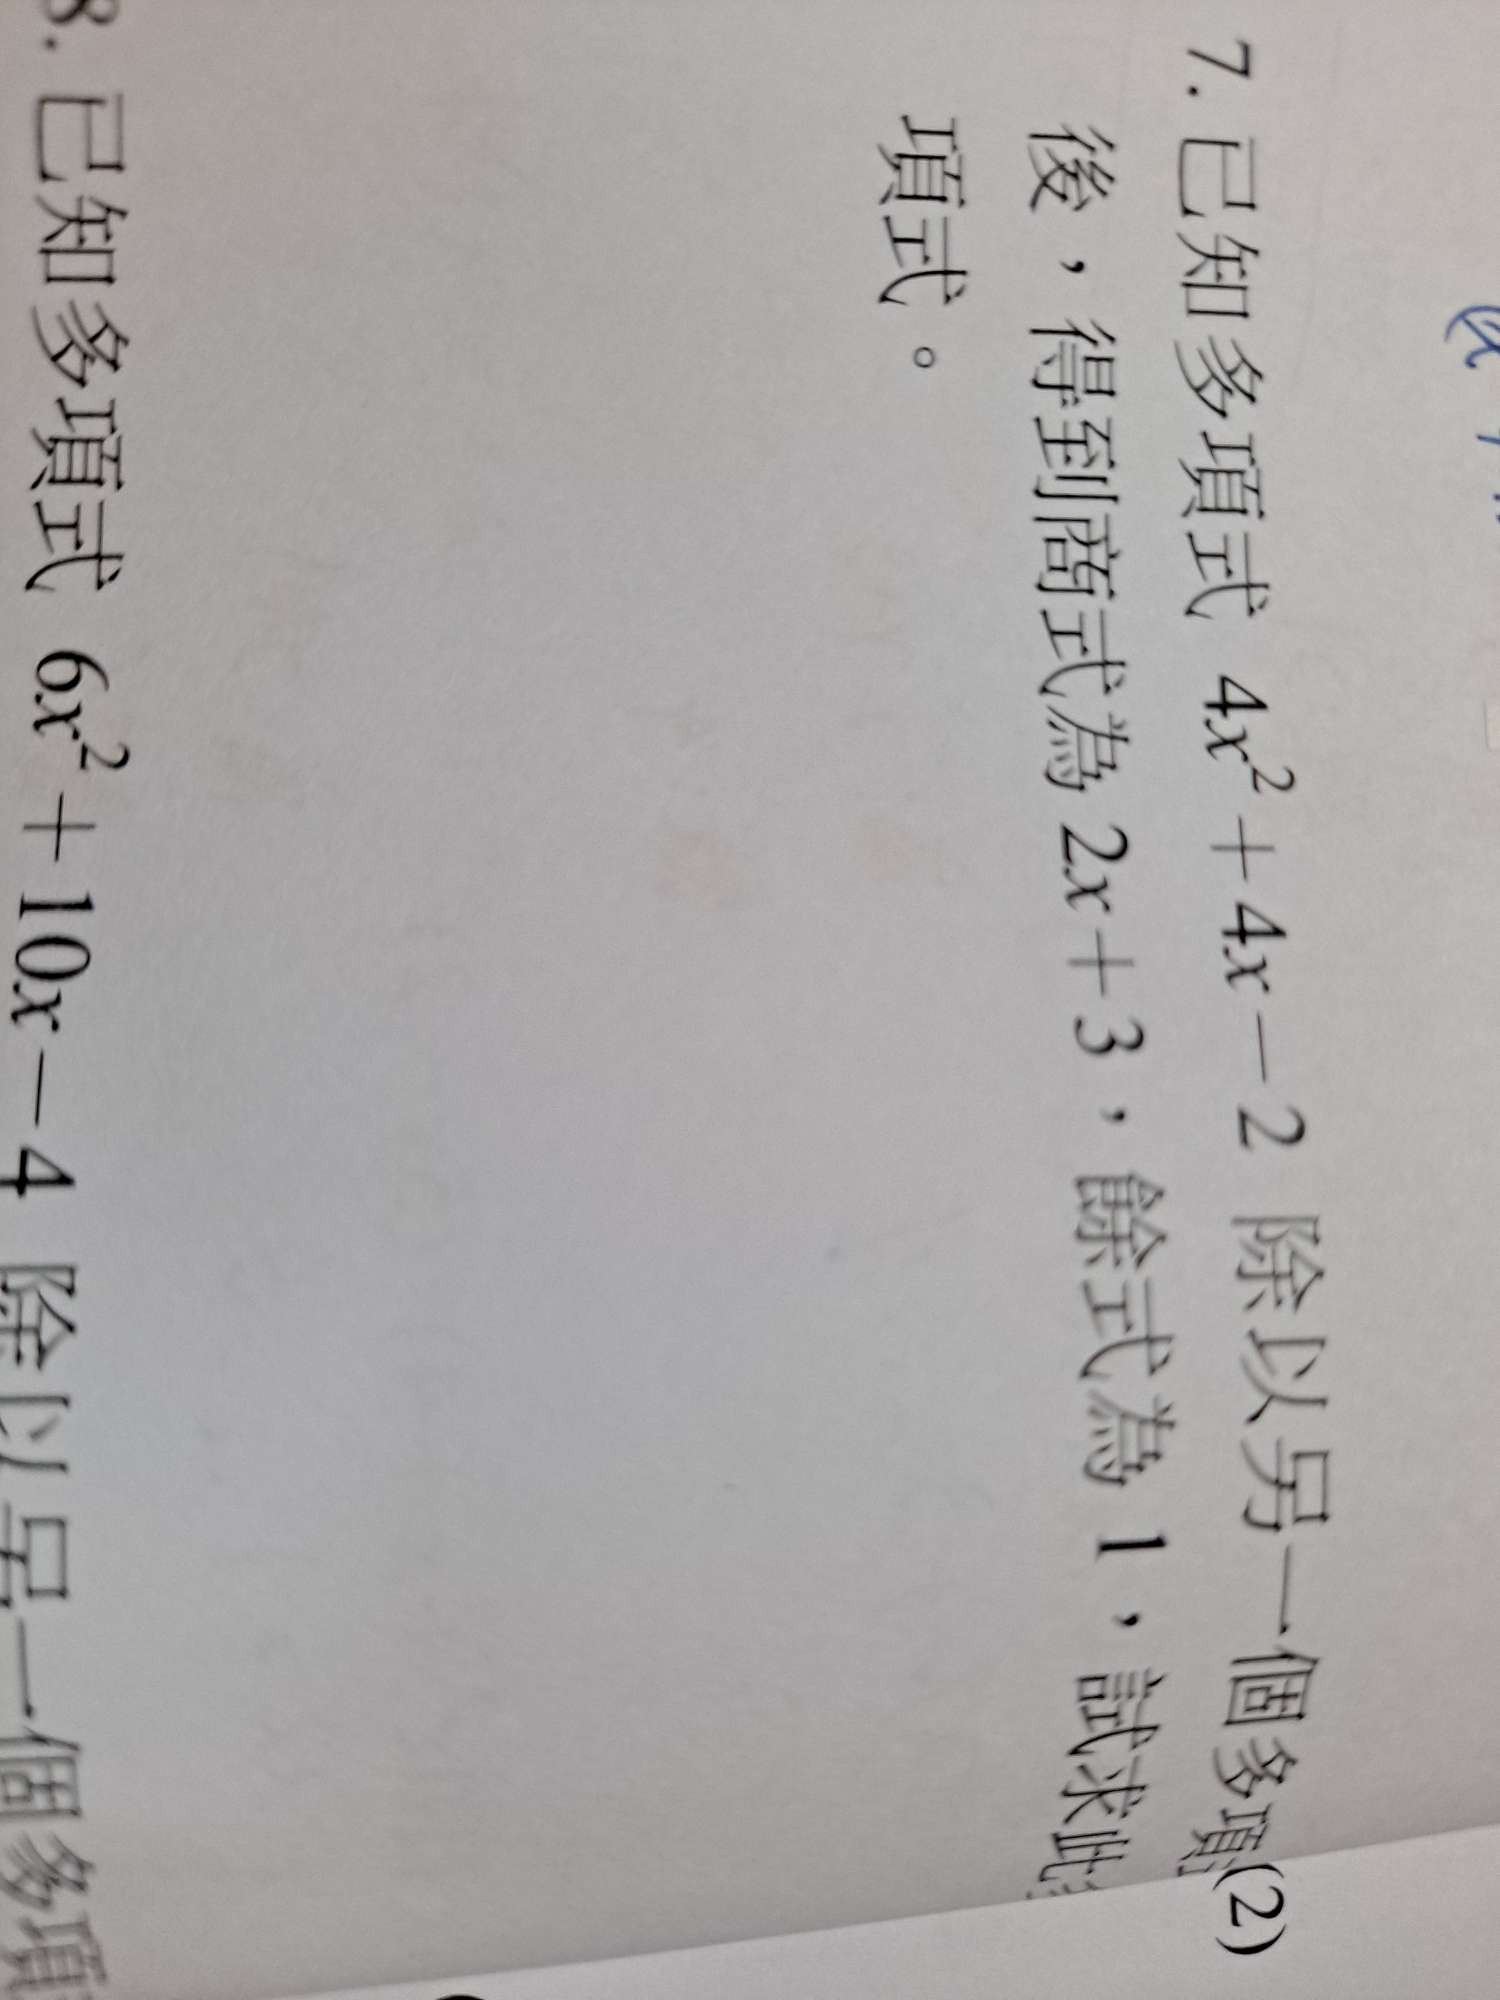 7. 已知多項式 4x²+4x−2 除以另一個多項
(2)
後，得到商式為 2x+3，餘式為 1，試求此
項式。
8. 已知多項式 6x²+10x−4 除以另一個多項